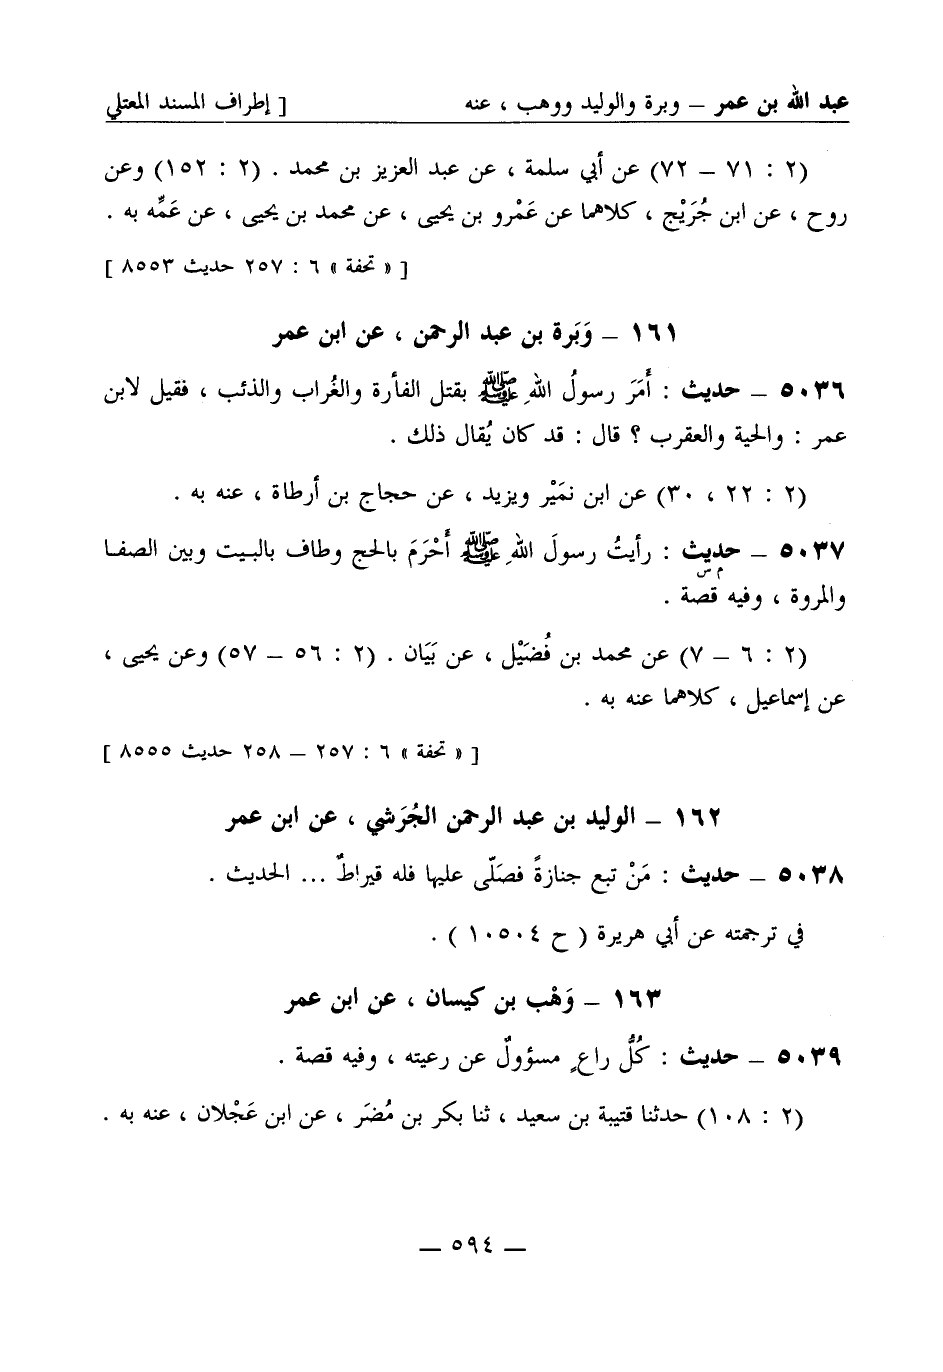 عبد الله بن عمر – وبرة والوليد ووهب ، عنه [ إطراف المسند المعتلي
(٢ : ٧١ – ٧٢) عن أبي سلمة ، عن عبد العزيز بن محمد . (٢ : ١٥٢) وعن
روح ، عن ابن جُرَيْج ، كلاهما عن عَمْرو بن يحيى ، عن محمد بن يحيى ، عن عَمِّه به .
[ « تحفة » ٦ : ٢٥٧ حديث ٨٥٥٣ ]
١٦١ – وَبَرة بن عبد الرحمن ، عن ابن عمر
٥٠٣٦ – حديث : أَمَرَ رسولُ اللهِ ﷺ بقتل الفأرة والغُراب والذئب ، فقيل لابن
عمر : والحية والعقرب ؟ قال : قد كان يُقال ذلك .
(٢ : ٢٢ ، ٣٠) عن ابن نمَيْر ويزيد ، عن حجاج بن أرطاة ، عنه به .
٥٠٣٧ – حديث : رأيتُ رسولَ اللهِ ﷺ أَحْرَمَ بالحج وطاف بالبيت وبين الصفا
م س
والمروة ، وفيه قصة .
(٢ : ٦ – ٧) عن محمد بن فُضَيْل ، عن بَيَان . (٢ : ٥٦ – ٥٧) وعن يحيى ،
عن إسماعيل ، كلاهما عنه به .
[ « تحفة » ٦ : ٢٥٧ – ٢٥٨ حديث ٨٥٥٥ ]
١٦٢ – الوليد بن عبد الرحمن الجُرَشي ، عن ابن عمر
٥٠٣٨ – حديث : مَنْ تبع جنازةً فصَلّى عليها فله قيراطٌ ... الحديث .
في ترجمته عن أبي هريرة ( ح ١٠٥٠٤ ) .
١٦٣ – وَهْب بن كيسان ، عن ابن عمر
٥٠٣٩ – حديث : كُلُّ راعٍ مسؤولٌ عن رعيته ، وفيه قصة .
(٢ : ١٠٨) حدثنا قتيبة بن سعيد ، ثنا بكر بن مُضَر ، عن ابن عَجْلان ، عنه به .
– ٥٩٤ –